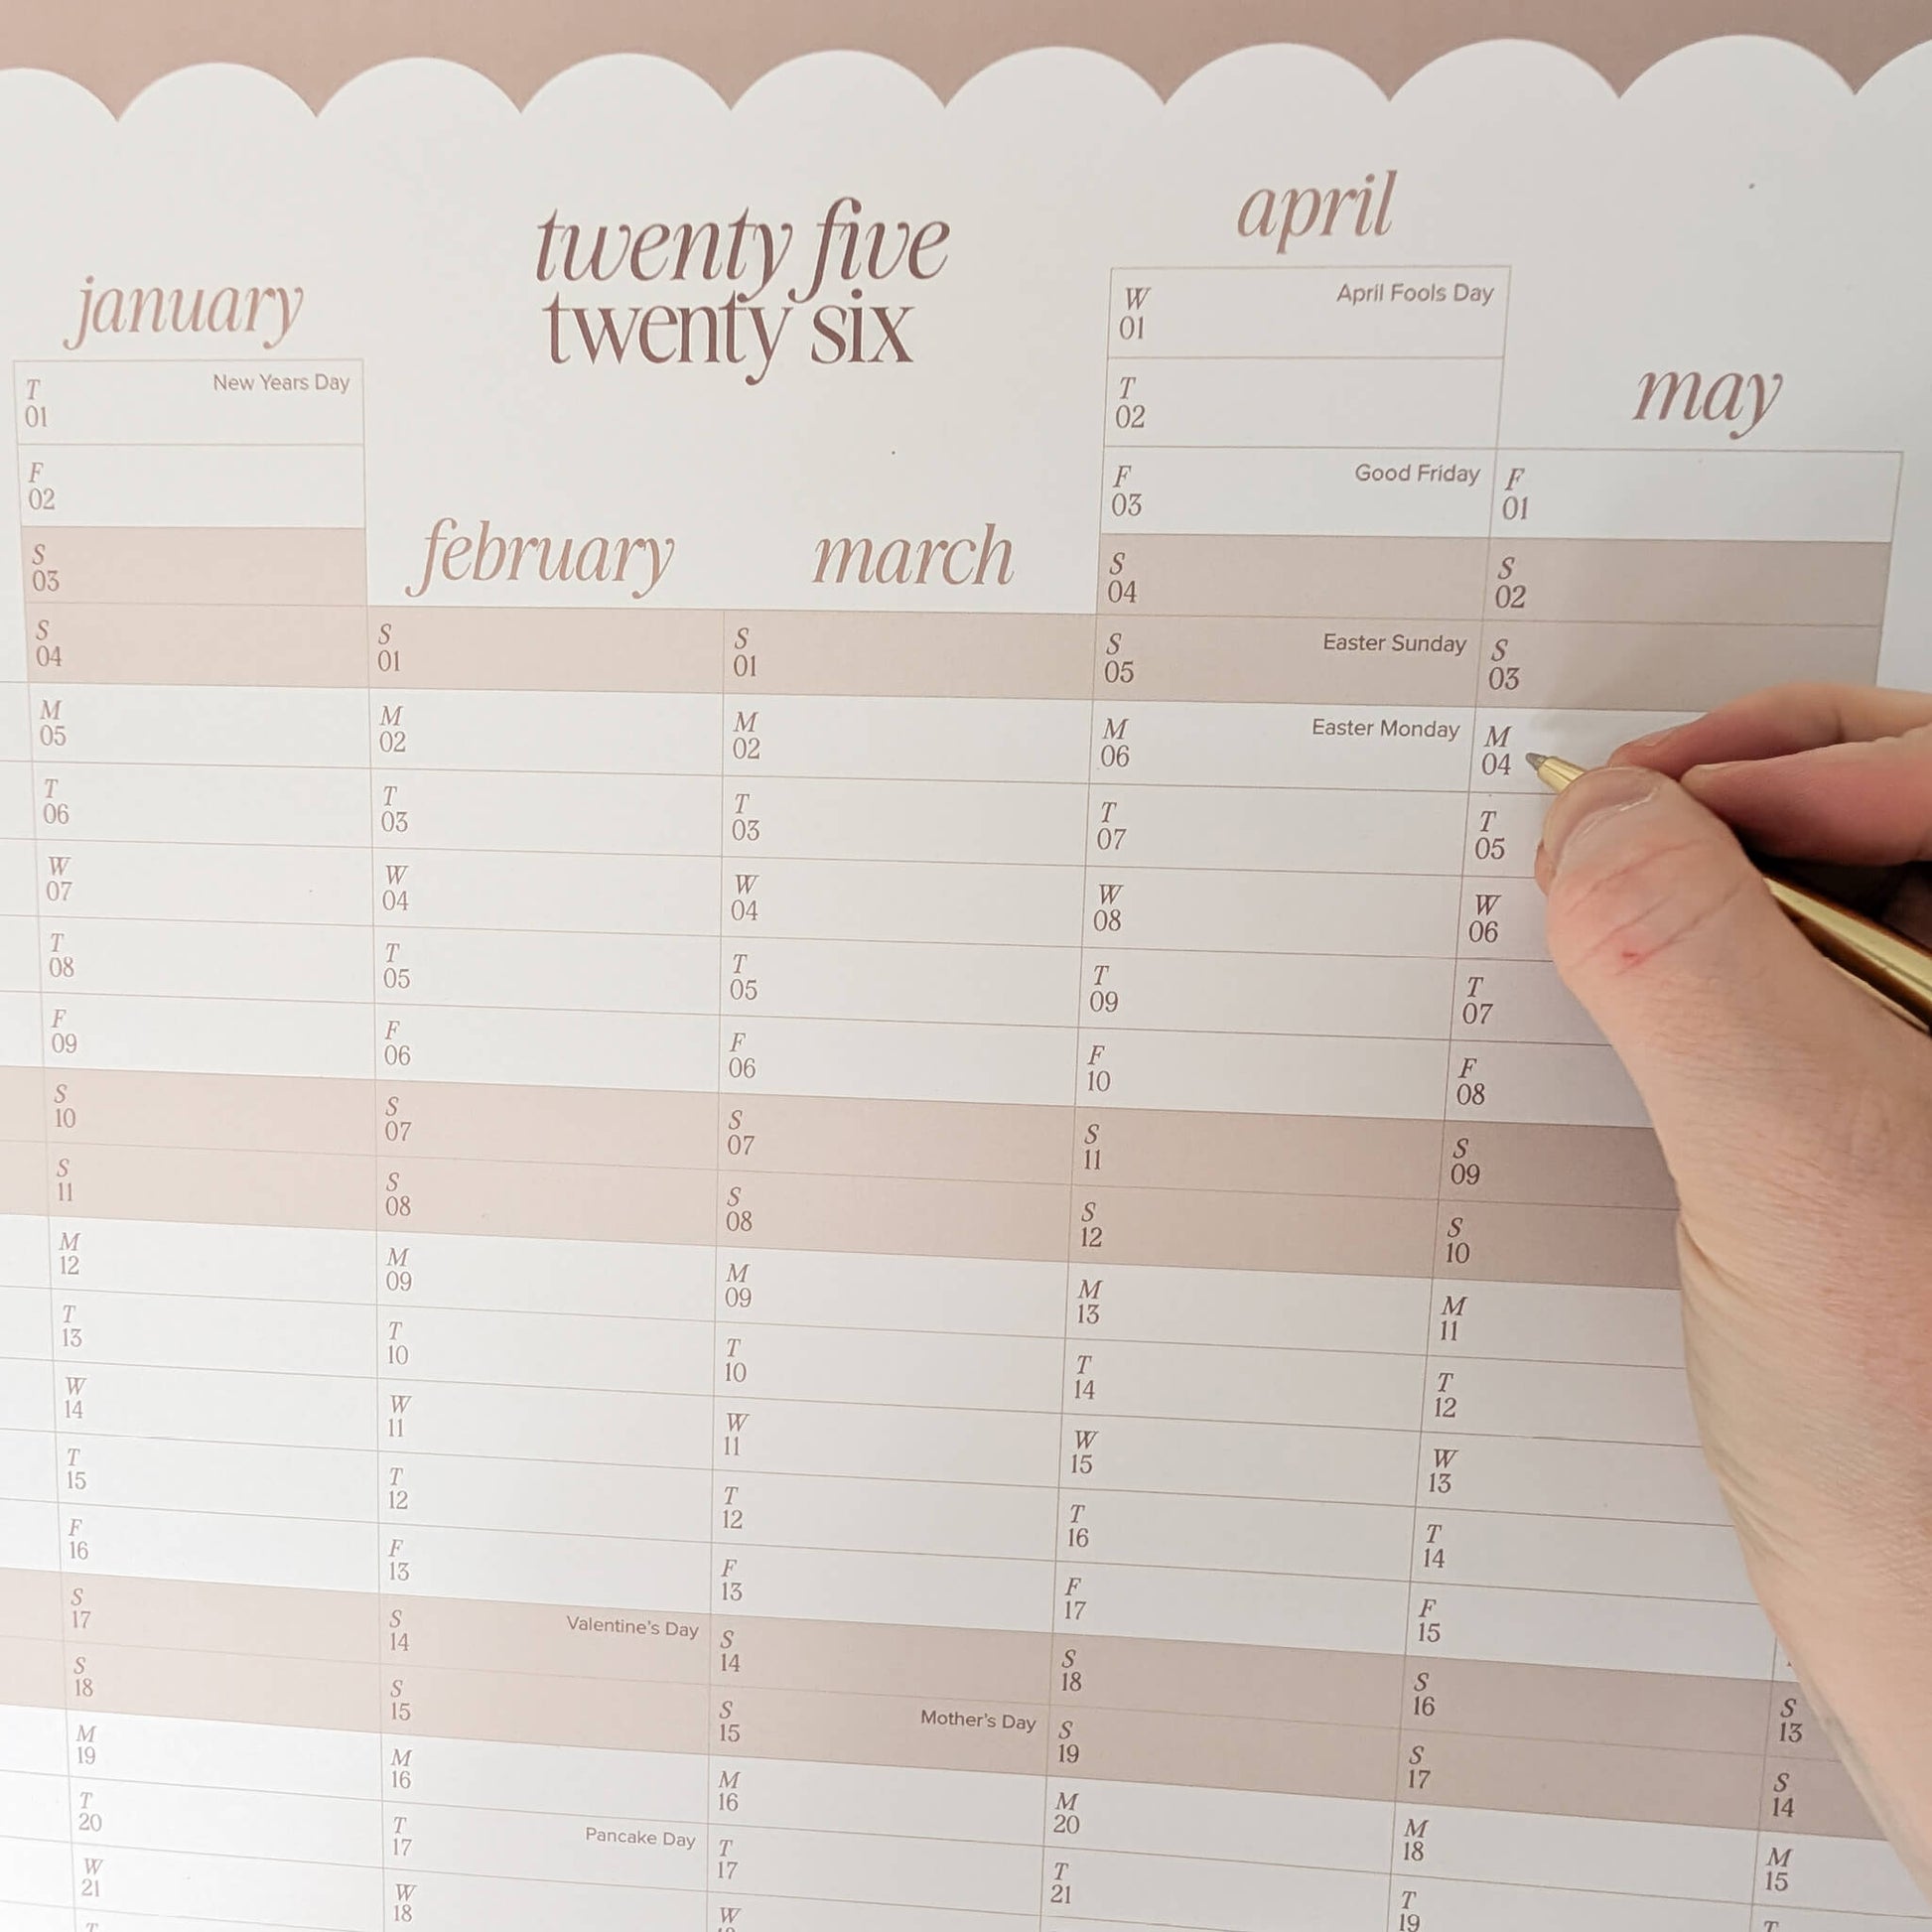 twenty five
twenty six
january
T
01
New Years Day
F
02
S
03
S
04
M
05
T
06
W
07
T
08
F
09
S
10
S
11
M
12
T
13
W
14
T
15
F
16
S
17
S
18
M
19
T
20
W
21
T
february
S
01
M
02
T
03
W
04
T
05
F
06
S
07
S
08
M
09
T
10
W
11
T
12
F
13
S
14
Valentine's Day
S
15
M
16
T
17
Pancake Day
W
18
march
S
01
M
02
T
03
W
04
T
05
F
06
S
07
S
08
M
09
T
10
W
11
T
12
F
13
S
14
S
15
Mother's Day
M
16
T
17
W
april
W
01
April Fools Day
T
02
F
03
Good Friday
S
04
S
05
Easter Sunday
M
06
Easter Monday
T
07
W
08
T
09
F
10
S
11
S
12
M
13
T
14
W
15
T
16
F
17
S
18
S
19
M
20
T
21
may
F
01
S
02
S
03
M
04
T
05
W
06
T
07
F
08
S
09
S
10
M
11
T
12
W
13
T
14
F
15
S
16
S
17
M
18
T
19
S
13
S
14
M
15
T